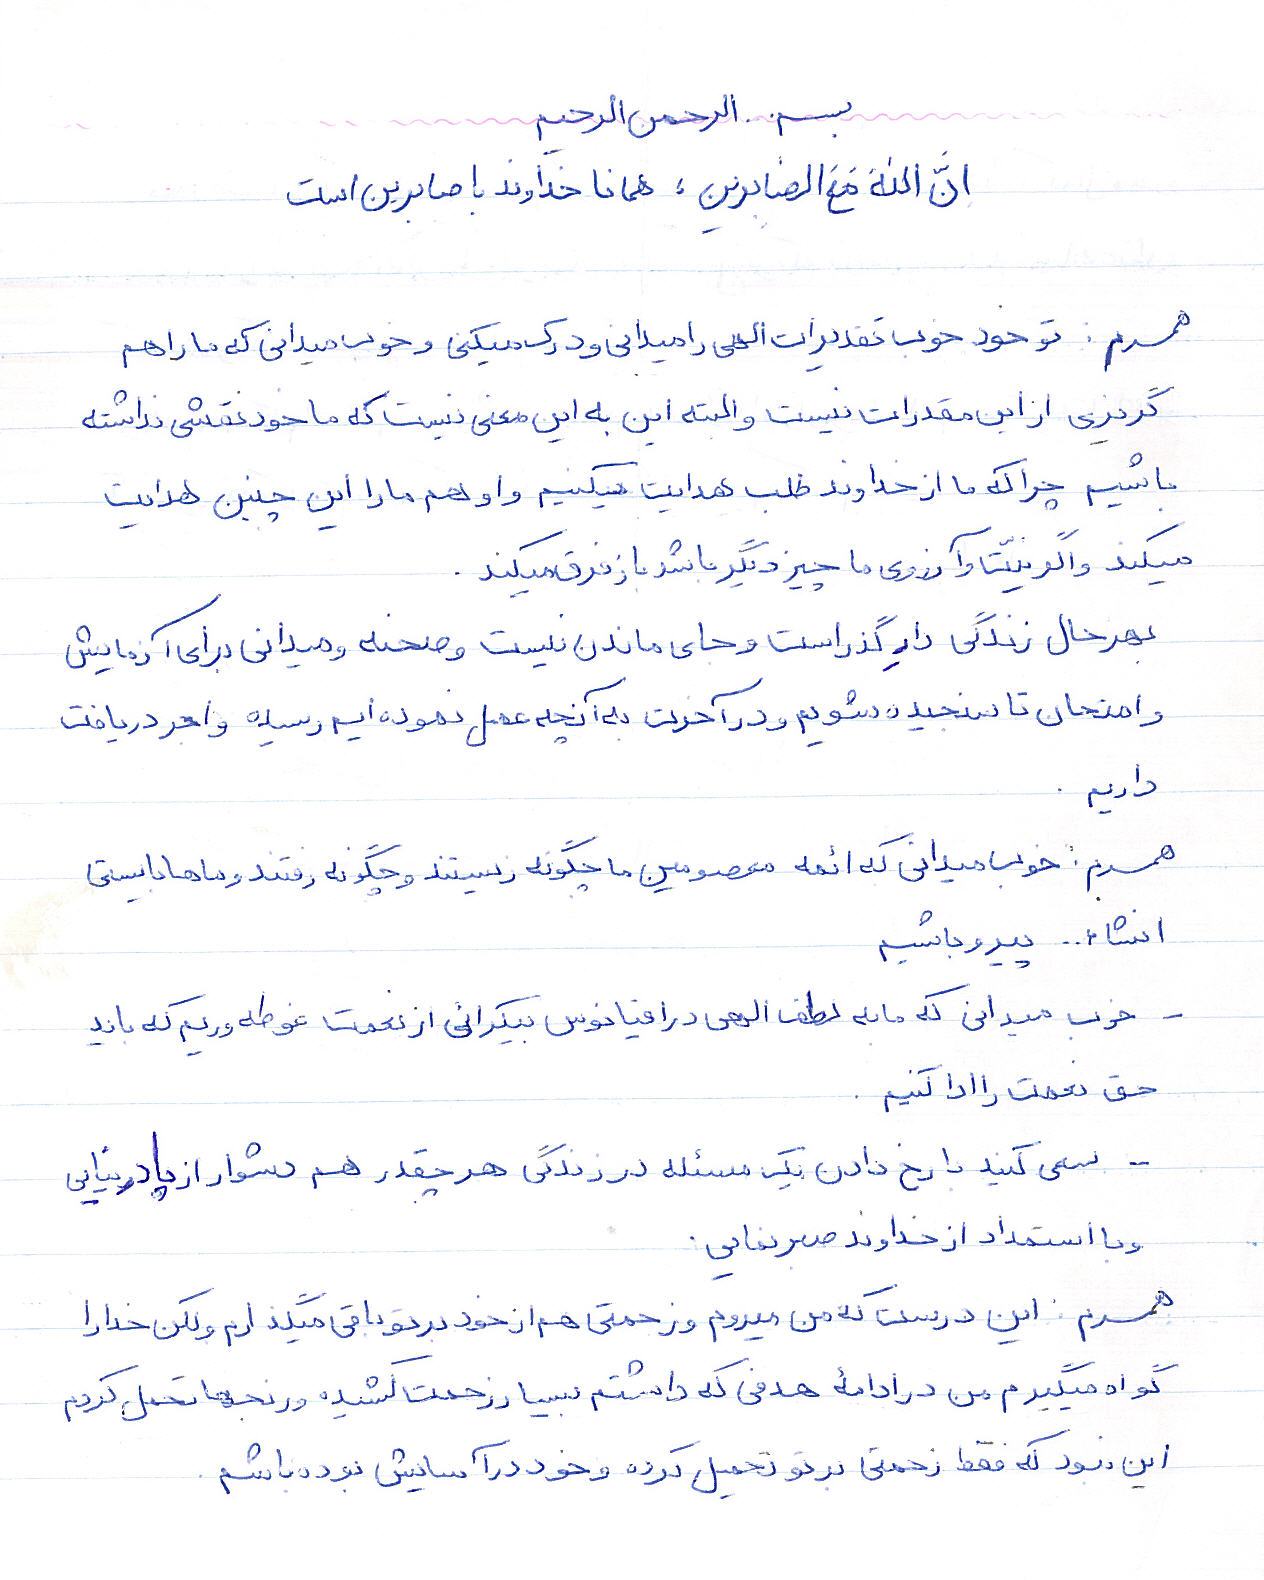 بسم .. الرحمن الرحیم
انَّ اللهَ مَعَ الصّابرین ؛ همانا خداوند با صابرین است
همسرم : تو خود خوب تقدیرات الهی را میدانی و درک میکنی و خوب میدانی که ما را هم
گریزی از این مقدرات نیست والبته این به این معنی نیست که ما خود نقشی نداشته
باشیم چرا که ما از خداوند طلب هدایت میکنیم و او هم ما را این چنین هدایت
میکند و اگر نیّت و آرزوی ما چیز دیگر باشد باز فرق میکند .
بهرحال زندگی دار گذر است و جای ماندن نیست و صحنه و میدانی برای آزمایش
و امتحان تا سنجیده شویم و در آخرت به آنچه عمل نموده ایم رسیده و اجر دریافت
داریم .
همسرم : خوب میدانی که ائمه معصومین ما چگونه زیستند و چگونه رفتند و ماها بایستی
انشاء .. پیرو باشیم
- خوب میدانی که ما به لطف الهی در اقیانوس بیکرانی از نعمت غوطه وریم که باید
حق نعمت را ادا کنیم .
- سعی کنید با رخ دادن یک مسئله در زندگی هر چقدر هم دشوار از پا در نیایی
و با استمداد از خداوند صبر نمایی .
همسرم : این درست که من میروم و زحمتی هم از خود بر تو باقی میگذارم ولکن خدا را
گواه میگیرم من در ادامهٔ هدفی که داشتم بسیار زحمت کشیده و رنجها تحمل کردم
این نبود که فقط زحمتی بر تو تحمیل کرده و خود در آسایش بوده باشم .